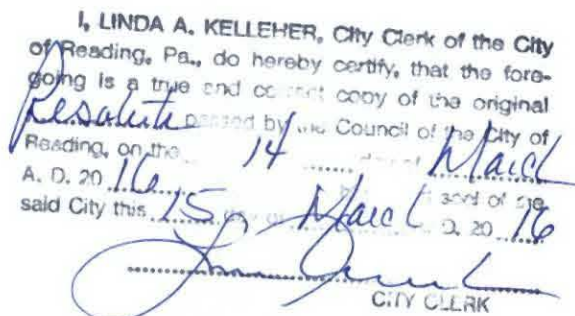 I, LINDA A. KELLEHER, City Clerk of the City
of Reading, Pa., do hereby certify, that the fore-
going is a true and correct copy of the original
Resolution passed by the Council of the City of
Reading, on the 14 day of March
A. D. 2016 seal of the
said City this 15 day of March A. D. 2016
CITY CLERK